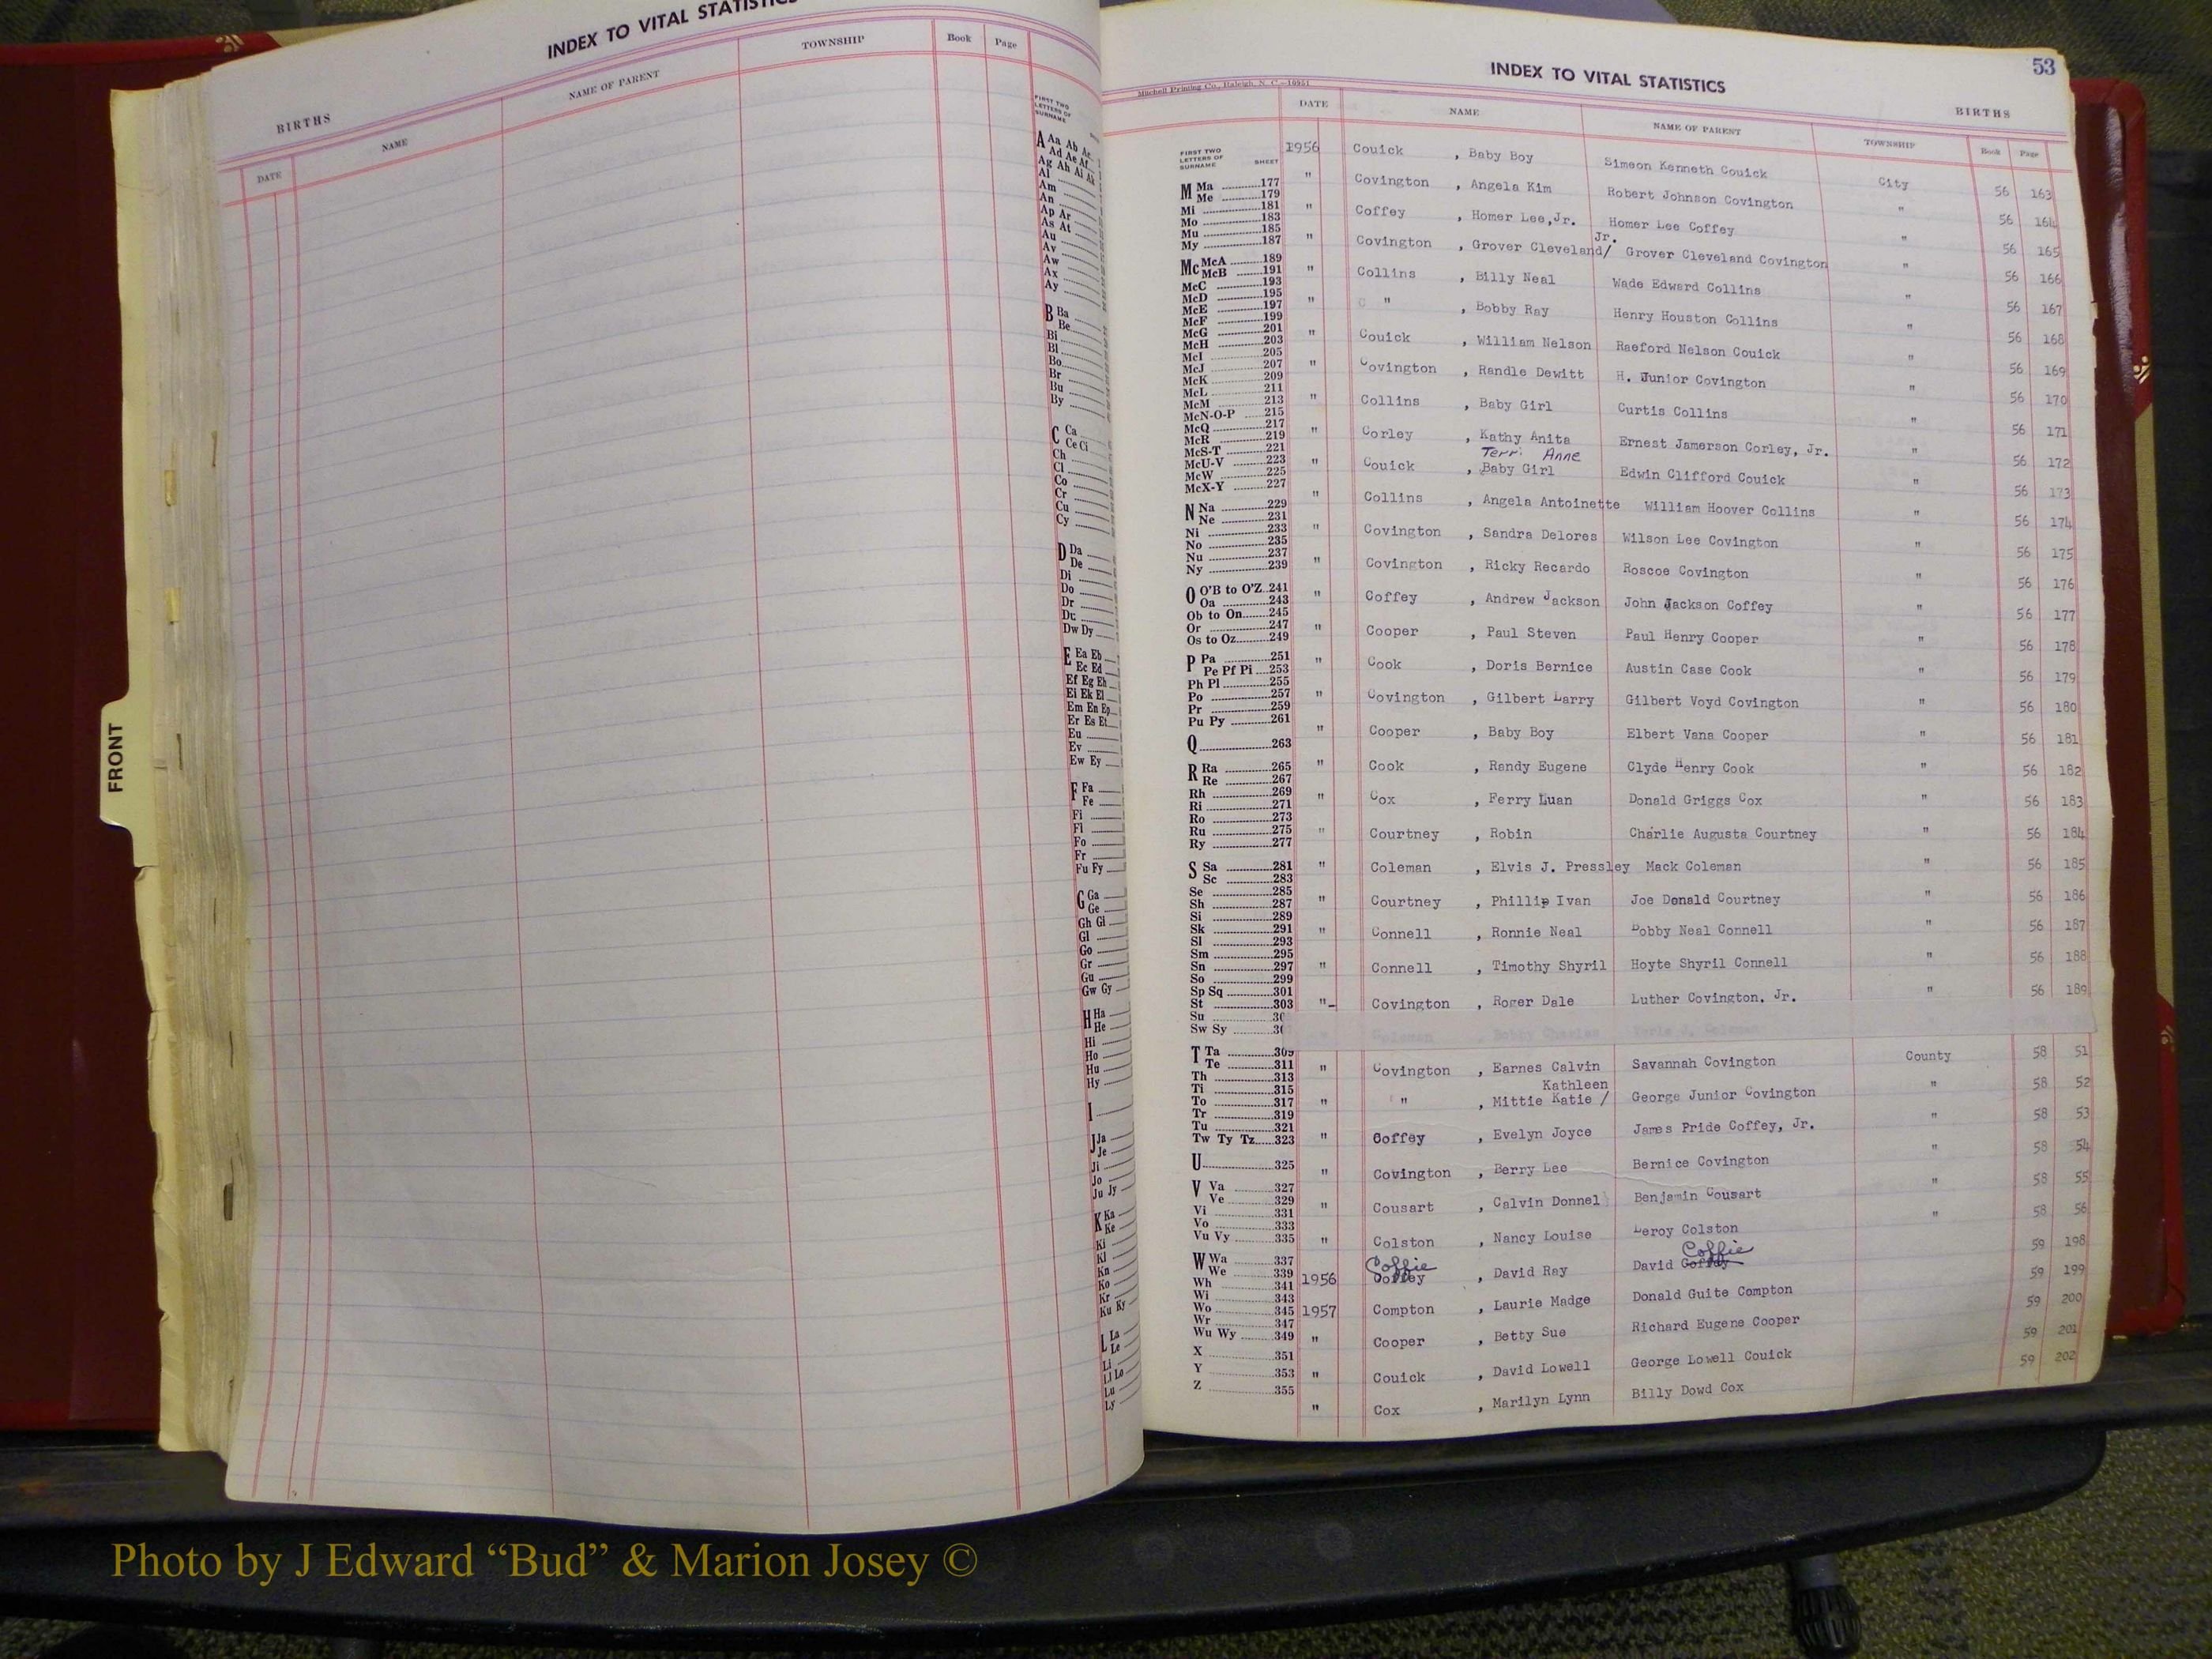 INDEX TO VITAL STATISTICS
BIRTHS
DATE NAME NAME OF PARENT TOWNSHIP Book Page
FIRST TWO
LETTERS OF
SURNAME
A Aa Ab Ac
Ad Ae Af
Ag Ah Ai Ak
Al
Am
An
Ap Ar
As At
Au
Av
Aw
Ax
Ay
B Ba
Be
Bi
Bl
Bo
Br
Bu
By
C Ca
Ce Ci
Ch
Cl
Co
Cr
Cu
Cy
D Da
De
Di
Do
Dr
Du
Dw Dy
E Ea Eb
Ec Ed
Ef Eg Eh
Ei Ek El
Em En Ep
Er Es Et
Eu
Ev
Ew Ey
F Fa
Fe
Fi
Fl
Fo
Fr
Fu Fy
G Ga
Ge
Gh Gi
Gl
Go
Gr
Gu
Gw Gy
H Ha
He
Hi
Ho
Hu
Hy
I
J Ja
Je
Ji
Jo
Ju Jy
K Ka
Ke
Ki
Kl
Kn
Ko
Kr
Ku Ky
L La
Le
Li
Ll Lo
Lu
Ly
FRONT
53
INDEX TO VITAL STATISTICS
Mitchell Printing Co., Raleigh, N. C.—16951
BIRTHS
DATE NAME NAME OF PARENT TOWNSHIP Book Page
FIRST TWO
LETTERS OF
SURNAME SHEET
M Ma 177
Me 179
Mi 181
Mo 183
Mu 185
My 187
Mc McA 189
McB 191
McC 193
McD 195
McE 197
McF 199
McG 201
McH 203
McI 205
McJ 207
McK 209
McL 211
McM 213
McN-O-P 215
McQ 217
McR 219
McS-T 221
McU-V 223
McW 225
McX-Y 227
N Na 229
Ne 231
Ni 233
No 235
Nu 237
Ny 239
O O'B to O'Z 241
Oa 243
Ob to On 245
Or 247
Os to Oz 249
P Pa 251
Pe Pf Pi 253
Ph Pl 255
Po 257
Pr 259
Pu Py 261
Q 263
R Ra 265
Re 267
Rh 269
Ri 271
Ro 273
Ru 275
Ry 277
S Sa 281
Sc 283
Se 285
Sh 287
Si 289
Sk 291
Sl 293
Sm 295
Sn 297
So 299
Sp Sq 301
St 303
Su
Sw Sy
T Ta 309
Te 311
Th 313
Ti 315
To 317
Tr 319
Tu 321
Tw Ty Tz 323
U 325
V Va 327
Ve 329
Vi 331
Vo 333
Vu Vy 335
W Wa 337
We 339
Wh 341
Wi 343
Wo 345
Wr 347
Wu Wy 349
X 351
Y 353
Z 355
1956 Couick , Baby Boy Simeon Kenneth Couick City 56 163
" Covington , Angela Kim Robert Johnson Covington " 56 164
" Coffey , Homer Lee,Jr. Homer Lee Coffey " 56 165
Jr.
" Covington , Grover Cleveland/ Grover Cleveland Covington " 56 166
" Collins , Billy Neal Wade Edward Collins " 56 167
" " , Bobby Ray Henry Houston Collins " 56 168
" Couick , William Nelson Raeford Nelson Couick " 56 169
" Covington , Randle Dewitt H. Junior Covington " 56 170
" Collins , Baby Girl Curtis Collins " 56 171
" Corley , Kathy Anita Ernest Jamerson Corley, Jr. " 56 172
Terri Anne
" Couick , Baby Girl Edwin Clifford Couick " 56 173
" Collins , Angela Antoinette William Hoover Collins " 56 174
" Covington , Sandra Delores Wilson Lee Covington " 56 175
" Covington , Ricky Recardo Roscoe Covington " 56 176
" Coffey , Andrew Jackson John Jackson Coffey " 56 177
" Cooper , Paul Steven Paul Henry Cooper " 56 178
" Cook , Doris Bernice Austin Case Cook " 56 179
" Covington , Gilbert Larry Gilbert Voyd Covington " 56 180
" Cooper , Baby Boy Elbert Vana Cooper " 56 181
" Cook , Randy Eugene Clyde Henry Cook " 56 182
" Cox , Ferry Luan Donald Griggs Cox " 56 183
" Courtney , Robin Charlie Augusta Courtney " 56 184
" Coleman , Elvis J. Pressley Mack Coleman " 56 185
" Courtney , Phillip Ivan Joe Donald Courtney " 56 186
" Connell , Ronnie Neal Bobby Neal Connell " 56 187
" Connell , Timothy Shyril Hoyte Shyril Connell " 56 188
"- Covington , Roger Dale Luther Covington, Jr. " 56 189
Coleman , Bobby Charles
" Covington , Earnes Calvin Savannah Covington County 58 51
Kathleen
" " , Mittie Katie / George Junior Covington " 58 52
" Coffey , Evelyn Joyce James Pride Coffey, Jr. " 58 53
" Covington , Berry Lee Bernice Covington " 58 54
" Cousart , Calvin Donnel Benjamin Cousart " 58 55
" Colston , Nancy Louise Leroy Colston " 58 56
Coffie Coffie
1956 Coffey , David Ray David Coffey 59 198
1957 Compton , Laurie Madge Donald Guite Compton 59 199
" Cooper , Betty Sue Richard Eugene Cooper 59 200
" Couick , David Lowell George Lowell Couick 59 201
" Cox , Marilyn Lynn Billy Dowd Cox 59 202
Photo by J Edward “Bud” & Marion Josey ©